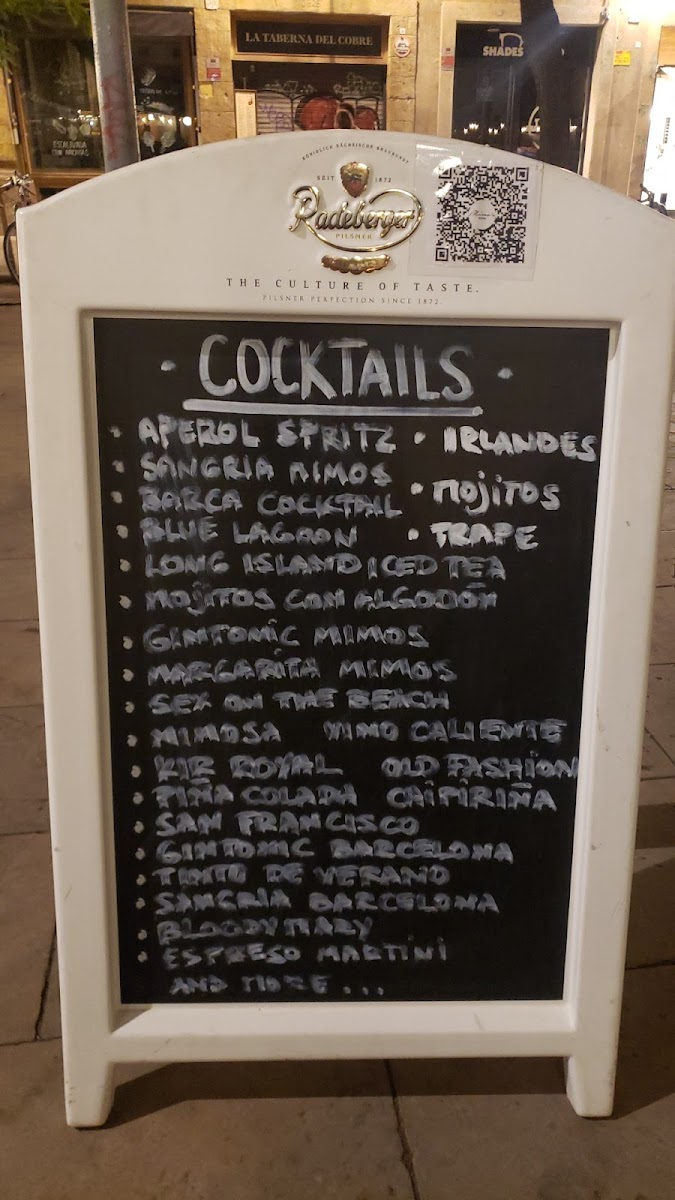 LA TABERNA DEL COBRE
SHADES
ESCALIVADA
CON ANCHOAS
KÖNIGLICH SÄCHSISCHE
SEIT 1872
Radeberger
PILSNER
THE CULTURE OF TASTE.
PILSNER PERFECTION SINCE 1872.
· COCKTAILS ·
• APEROL SPRITZ • IRLANDES
SANGRIA MIMOS
• MOJITOS
• BARCA COCKTAIL
• BLUE LAGOON • TRAPE
• LONG ISLAND ICED TEA
• MOJITOS CON ALGODÓN
• GINTONIC MIMOS
• MARGARITA MIMOS
• SEX ON THE BEACH
• MIMOSA VINO CALIENTE
• KIR ROYAL OLD FASHION
• PIÑA COLADA CAIPIRIÑA
• SAN FRANCISCO
• GINTONIC BARCELONA
• TINTO DE VERANO
• SANGRIA BARCELONA
• BLOODY MARY
• ESPRESO MARTINI
AND MORE ...